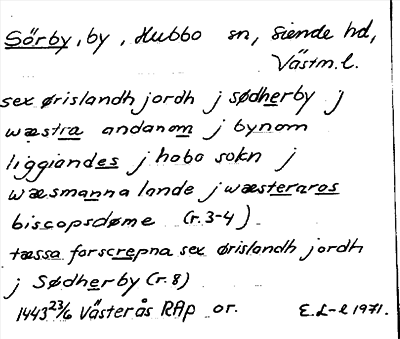 Sörby, by, Hubbo sn, Siende hd,
Västm. l.
sex ørislandh jordh j sødherby j
wæstra andanom j bynom
liggiandes j hobo sokn j
wæsmanna lande j wæsteraros
biscopsdøme (r. 3-4)
tæssa forscrepna sex ørislandh jordh
j Sødherby (r. 8)
1443 23/6 Västerås RAp or. E.L-l 1971.